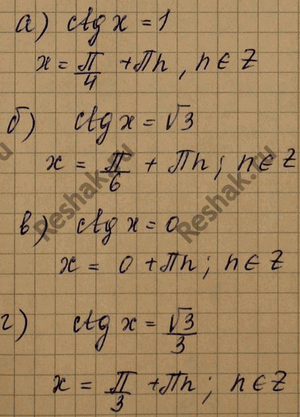 а) ctg x = 1
x = π/4 + πn, n ∈ Z
б) ctg x = √3
x = π/6 + πn; n ∈ Z
в) ctg x = 0
x = 0 + πn; n ∈ Z
г) ctg x = √3/3
x = π/3 + πn; n ∈ Z
Reshak.ru
Reshak.ru